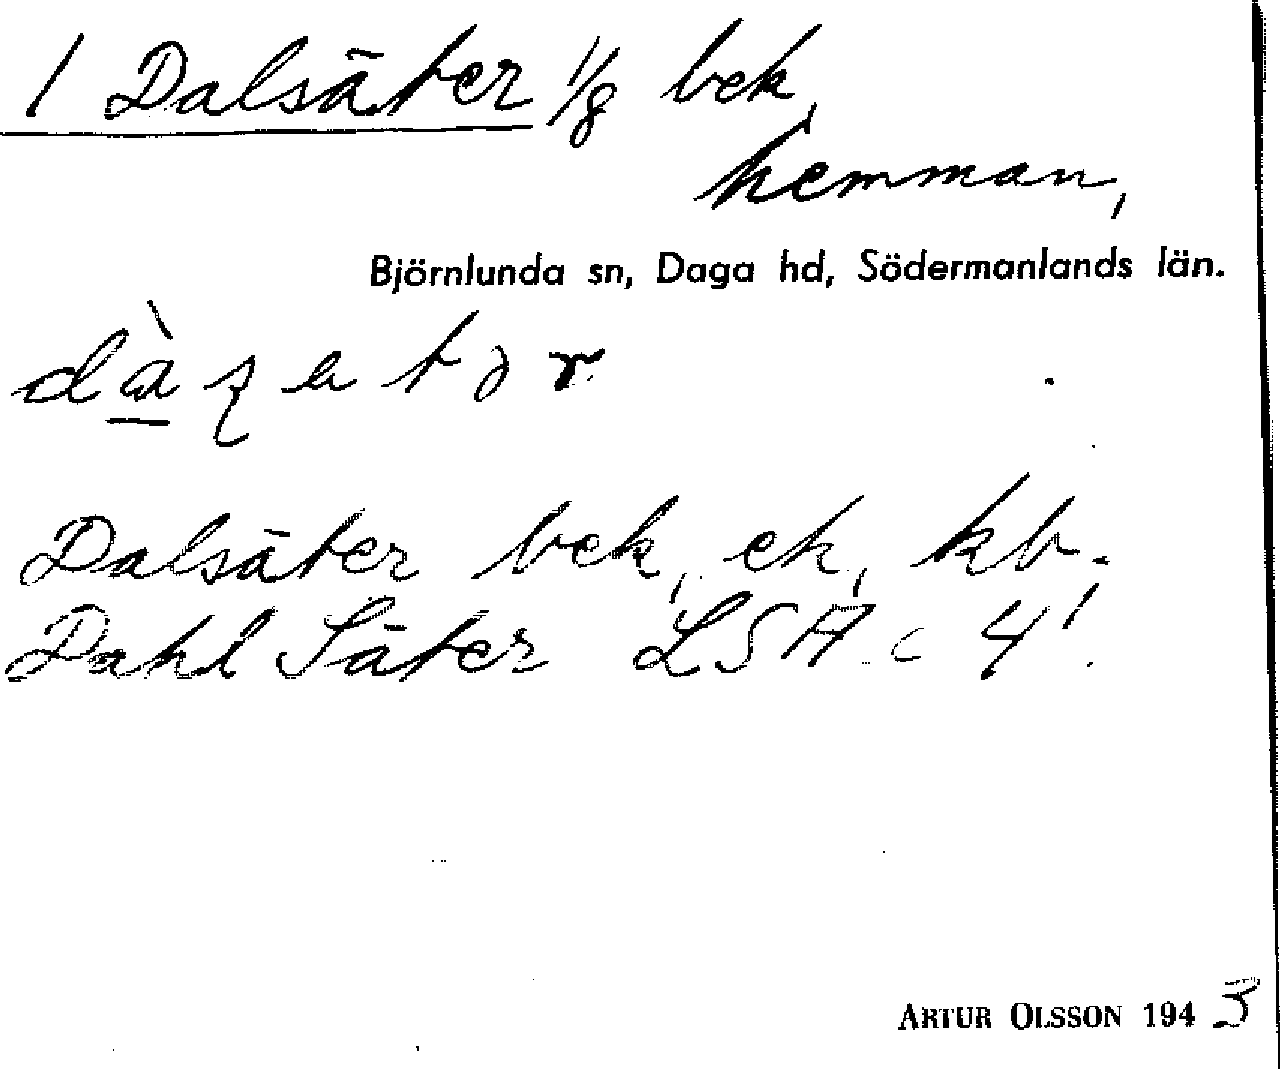 1 Dalsäter 1/8 bek,
hemman,
Björnlunda sn, Daga hd, Södermanlands län.
Dalsäter bek, ek, kb.
Dahl Säter LSA c 4!
ARTUR OLSSON 1943